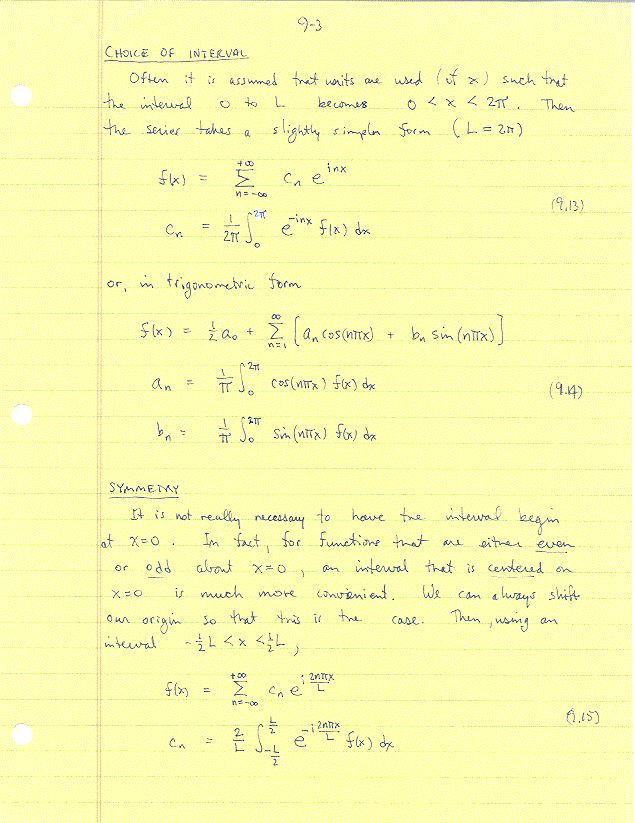 9-3
CHOICE OF INTERVAL
Often it is assumed that units are used (of x) such that
the interval 0 to L becomes 0 < x < 2π. Then
the series takes a slightly simpler form (L = 2π)
f(x) = ∑_{n=-∞}^{+∞} c_n e^{inx}
(9.13)
c_n = 1/2π ∫_0^{2π} e^{-inx} f(x) dx
or, in trigonometric form
f(x) = ½ a_0 + ∑_{n=1}^{∞} [a_n cos(nπx) + b_n sin(nπx)]
a_n = 1/π ∫_0^{2π} cos(nπx) f(x) dx
(9.14)
b_n = 1/π ∫_0^{2π} sin(nπx) f(x) dx
SYMMETRY
It is not really necessary to have the interval begin
at x=0. In fact, for functions that are either even
or odd about x=0, an interval that is centered on
x=0 is much more convenient. We can always shift
our origin so that this is the case. Then, using an
interval -½L < x < ½L,
f(x) = ∑_{n=-∞}^{+∞} c_n e^{i 2nπx/L}
(9.15)
c_n = 2/L ∫_{-L/2}^{L/2} e^{-i 2nπx/L} f(x) dx